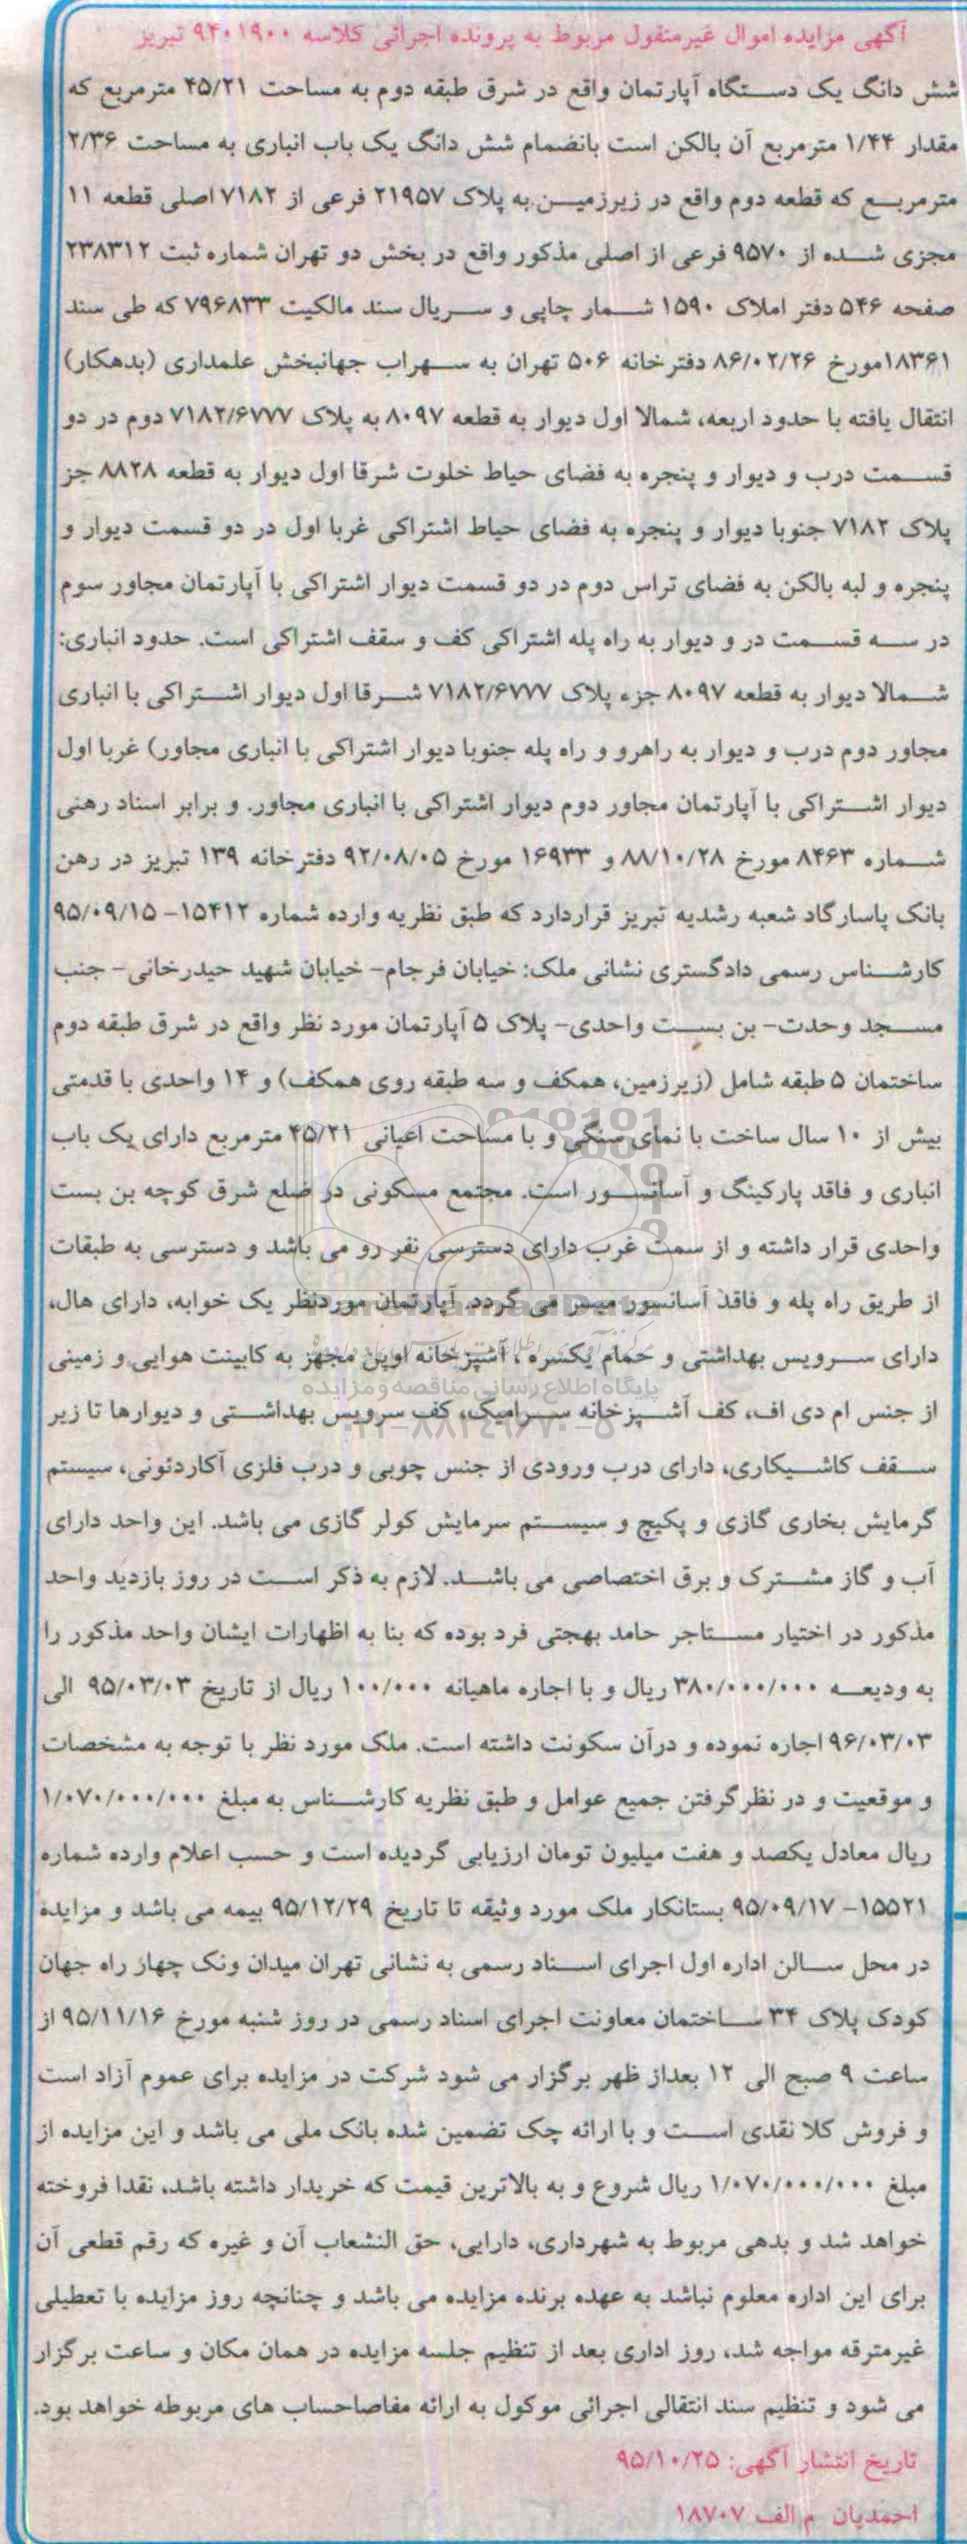 آگهی مزایده اموال غیرمنقول مربوط به پرونده اجرائی کلاسه ۹۴۰۱۹۰۰ تبریز
شش دانگ یک دستگاه آپارتمان واقع در شرق طبقه دوم به مساحت ۴۵/۲۱ مترمربع که
مقدار ۱/۴۴ مترمربع آن بالکن است بانضمام شش دانگ یک باب انباری به مساحت ۲/۳۶
مترمربع که قطعه دوم واقع در زیرزمین به پلاک ۲۱۹۵۷ فرعی از ۷۱۸۲ اصلی قطعه ۱۱
مجزی شده از ۹۵۷۰ فرعی از اصلی مذکور واقع در بخش دو تهران شماره ثبت ۲۳۸۳۱۲
صفحه ۵۴۶ دفتر املاک ۱۵۹۰ شمار چاپی و سریال سند مالکیت ۷۹۶۸۳۳ که طی سند
۱۸۳۶۱مورخ ۸۶/۰۲/۲۶ دفترخانه ۵۰۶ تهران به سهراب جهانبخش علمداری (بدهکار)
انتقال یافته با حدود اربعه، شمالا اول دیوار به قطعه ۸۰۹۷ به پلاک ۷۱۸۲/۶۷۷۷ دوم در دو
قسمت درب و دیوار و پنجره به فضای حیاط خلوت شرقا اول دیوار به قطعه ۸۸۲۸ جز
پلاک ۷۱۸۲ جنوبا دیوار و پنجره به فضای حیاط اشتراکی غربا اول در دو قسمت دیوار و
پنجره و لبه بالکن به فضای تراس دوم در دو قسمت دیوار اشتراکی با آپارتمان مجاور سوم
در سه قسمت در و دیوار به راه پله اشتراکی کف و سقف اشتراکی است. حدود انباری:
شمالا دیوار به قطعه ۸۰۹۷ جزء پلاک ۷۱۸۲/۶۷۷۷ شرقا اول دیوار اشتراکی با انباری
مجاور دوم درب و دیوار به راهرو و راه پله جنوبا دیوار اشتراکی با انباری مجاور) غربا اول
دیوار اشتراکی با آپارتمان مجاور دوم دیوار اشتراکی با انباری مجاور. و برابر اسناد رهنی
شماره ۸۴۶۳ مورخ ۸۸/۱۰/۲۸ و ۱۶۹۳۳ مورخ ۹۲/۰۸/۰۵ دفترخانه ۱۳۹ تبریز در رهن
بانک پاسارگاد شعبه رشدیه تبریز قراردارد که طبق نظریه وارده شماره ۱۵۴۱۲- ۹۵/۰۹/۱۵
کارشناس رسمی دادگستری نشانی ملک: خیابان فرجام- خیابان شهید حیدرخانی- جنب
مسجد وحدت- بن بست واحدی- پلاک ۵ آپارتمان مورد نظر واقع در شرق طبقه دوم
ساختمان ۵ طبقه شامل (زیرزمین، همکف و سه طبقه روی همکف) و ۱۴ واحدی با قدمتی
بیش از ۱۰ سال ساخت با نمای سنگی و با مساحت اعیانی ۴۵/۲۱ مترمربع دارای یک باب
انباری و فاقد پارکینگ و آسانسور است. مجتمع مسکونی در ضلع شرق کوچه بن بست
واحدی قرار داشته و از سمت غرب دارای دسترسی نفر رو می باشد و دسترسی به طبقات
از طریق راه پله و فاقد آسانسور میسر می گردد. آپارتمان موردنظر یک خوابه، دارای هال،
دارای سرویس بهداشتی و حمام یکسره، آشپزخانه اوپن مجهز به کابینت هوایی و زمینی
پایگاه اطلاع رسانی مناقصه و مزایده
از جنس ام دی اف، کف آشپزخانه سرامیک، کف سرویس بهداشتی و دیوارها تا زیر
۰۲۱-۸۸۳۴۹۶۷۰-۵
سقف کاشیکاری، دارای درب ورودی از جنس چوبی و درب فلزی آکاردئونی، سیستم
گرمایش بخاری گازی و پکیج و سیستم سرمایش کولر گازی می باشد. این واحد دارای
آب و گاز مشترک و برق اختصاصی می باشد. لازم به ذکر است در روز بازدید واحد
مذکور در اختیار مستاجر حامد بهجتی فرد بوده که بنا به اظهارات ایشان واحد مذکور را
به ودیعه ۳۸۰/۰۰۰/۰۰۰ ریال و با اجاره ماهیانه ۱۰۰/۰۰۰ ریال از تاریخ ۹۵/۰۳/۰۳ الی
۹۶/۰۳/۰۳ اجاره نموده و درآن سکونت داشته است. ملک مورد نظر با توجه به مشخصات
و موقعیت و در نظرگرفتن جمیع عوامل و طبق نظریه کارشناس به مبلغ ۱/۰۷۰/۰۰۰/۰۰۰
ریال معادل یکصد و هفت میلیون تومان ارزیابی گردیده است و حسب اعلام وارده شماره
۱۵۵۲۱- ۹۵/۰۹/۱۷ بستانکار ملک مورد وثیقه تا تاریخ ۹۵/۱۲/۲۹ بیمه می باشد و مزایده
در محل سالن اداره اول اجرای اسناد رسمی به نشانی تهران میدان ونک چهار راه جهان
کودک پلاک ۳۴ ساختمان معاونت اجرای اسناد رسمی در روز شنبه مورخ ۹۵/۱۱/۱۶ از
ساعت ۹ صبح الی ۱۲ بعداز ظهر برگزار می شود شرکت در مزایده برای عموم آزاد است
و فروش کلا نقدی است و با ارائه چک تضمین شده بانک ملی می باشد و این مزایده از
مبلغ ۱/۰۷۰/۰۰۰/۰۰۰ ریال شروع و به بالاترین قیمت که خریدار داشته باشد، نقدا فروخته
خواهد شد و بدهی مربوط به شهرداری، دارایی، حق النشعاب آن و غیره که رقم قطعی آن
برای این اداره معلوم نباشد به عهده برنده مزایده می باشد و چنانچه روز مزایده با تعطیلی
غیرمترقه مواجه شد، روز اداری بعد از تنظیم جلسه مزایده در همان مکان و ساعت برگزار
می شود و تنظیم سند انتقالی اجرائی موکول به ارائه مفاصاحساب های مربوطه خواهد بود.
تاریخ انتشار آگهی: ۹۵/۱۰/۲۵
احمدیان م الف ۱۸۷۰۷